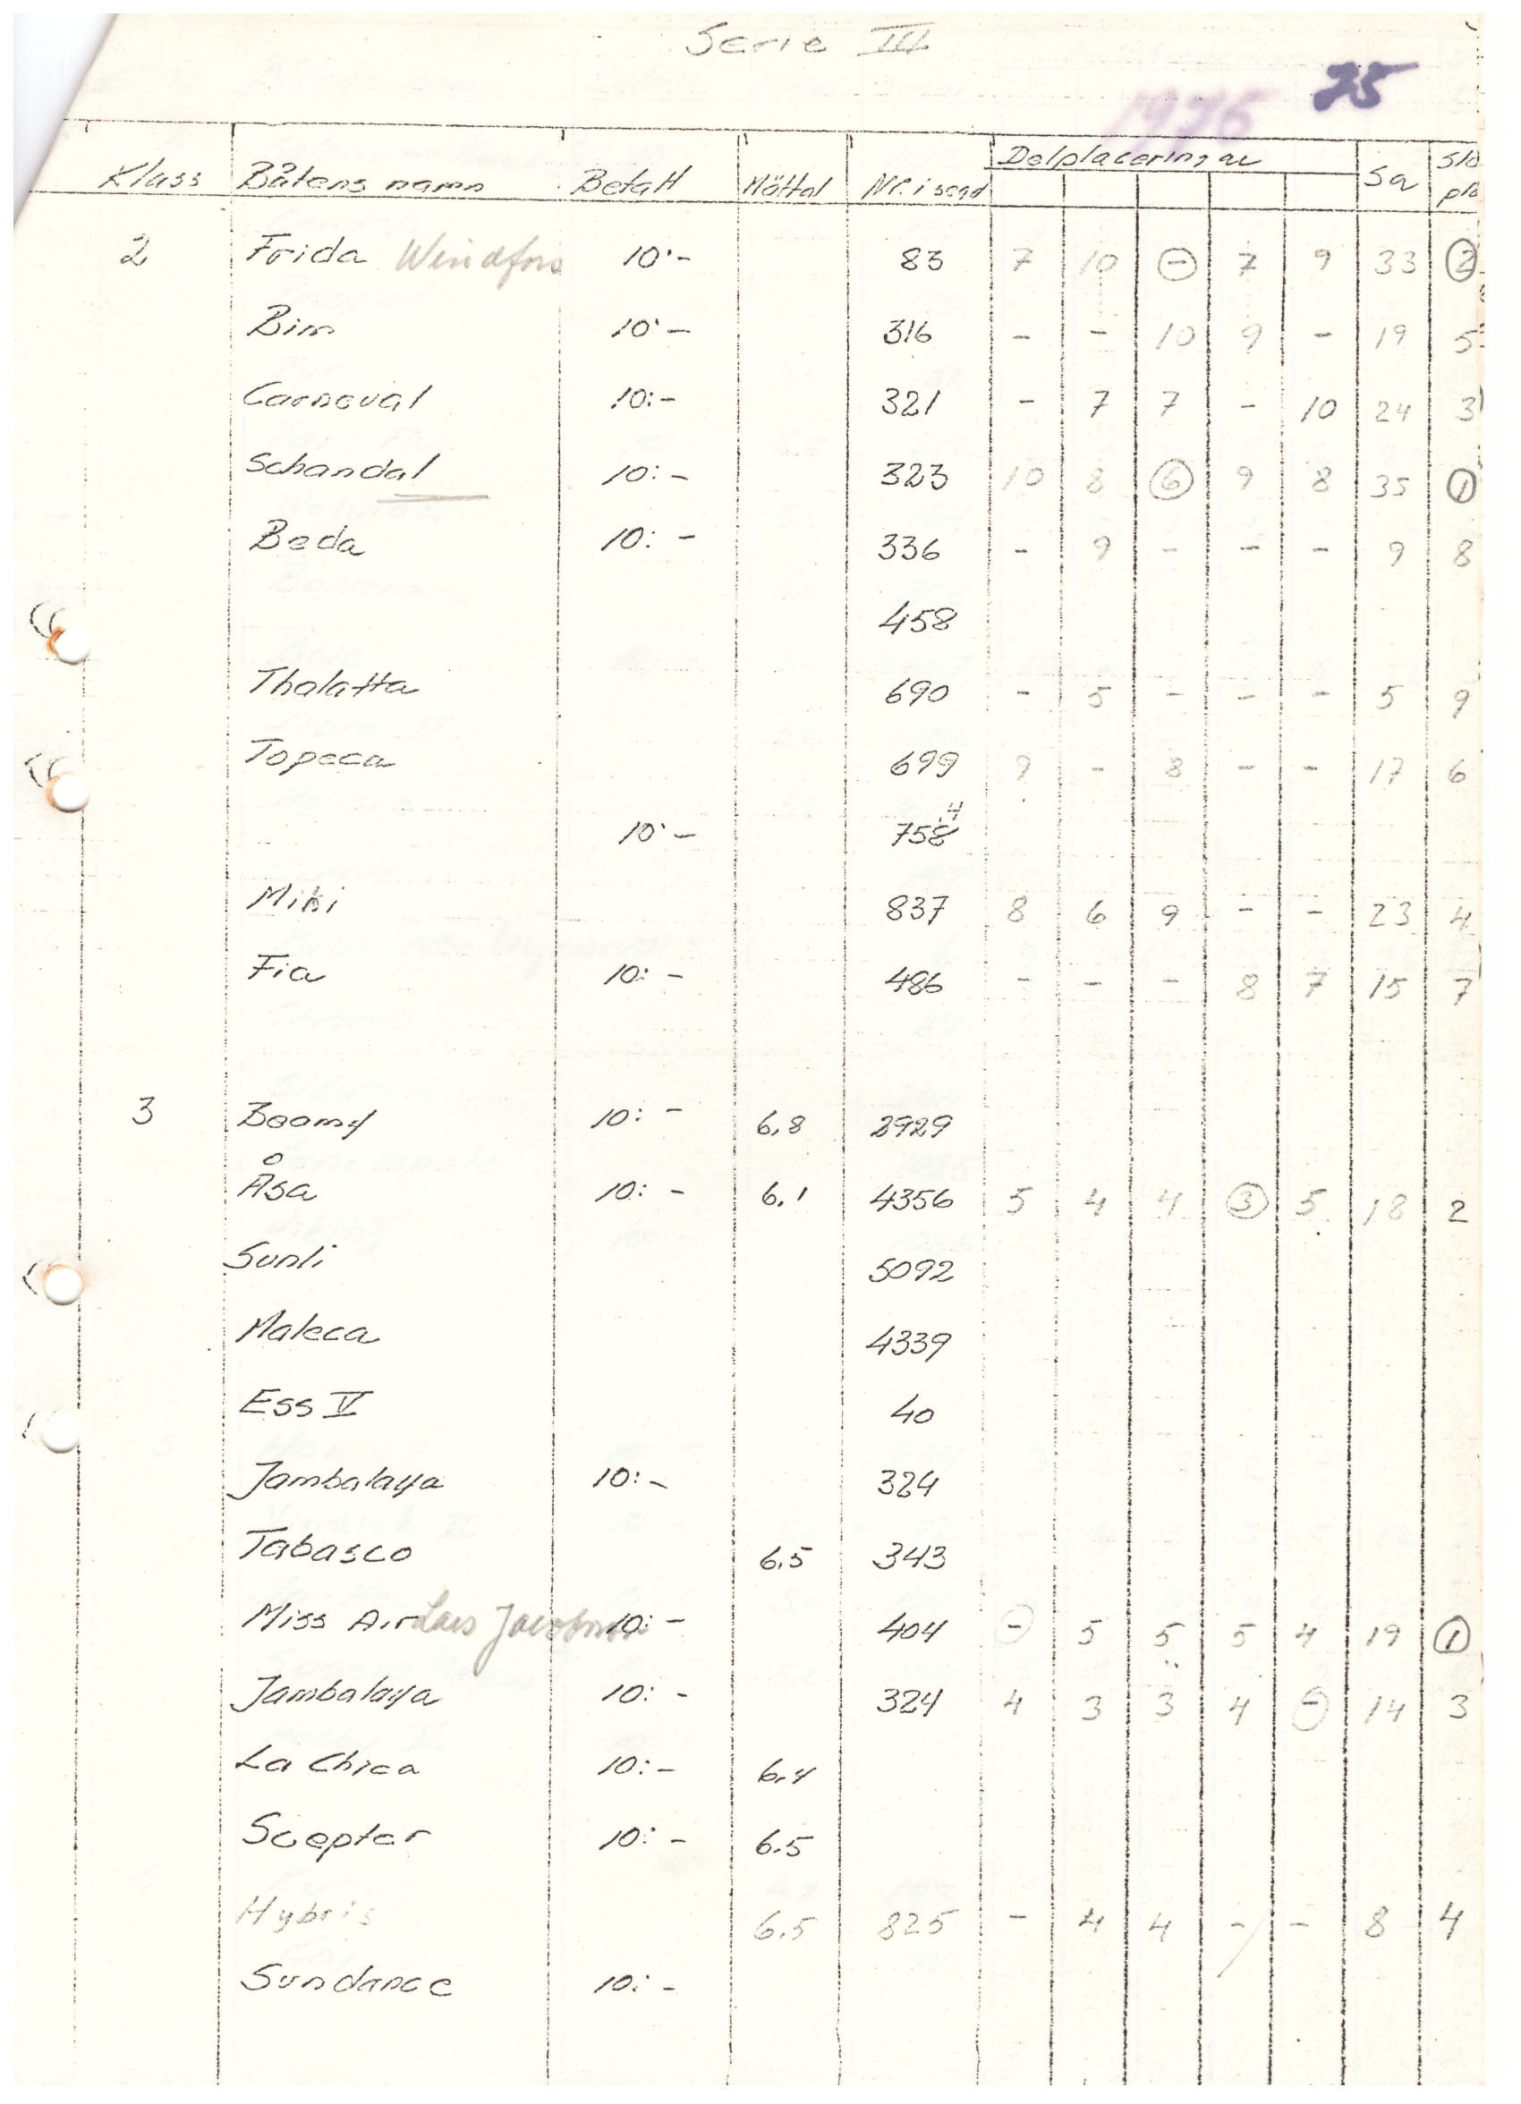 Serie III
1976 75
Klass Båtens namn Betalt Mättal Nr. i segel Delplaceringar Sa
2 Frida Windfors 10:- 83 7 10 - 7 9 33 2
Bim 10:- 316 - - 10 9 - 19 5
Carneval 10:- 321 - 7 7 - 10 24 3
Schandal 10:- 323 10 8 6 9 8 35 1
Beda 10:- 336 - 9 - - - 9 8
458
Thalatta 690 - 5 - - - 5 9
Topeca 699 9 - 8 - - 17 6
10:- 758 4
Miki 837 8 6 9 - - 23 4
Fia 10:- 486 - - - 8 7 15 7
3 Boomy 10:- 6,8 2929
Åsa 10:- 6,1 4356 5 4 4 3 5 18 2
Sunli 5092
Maleca 4339
Ess V 40
Jambalaya 10:- 324
Tabasco 6,5 343
Miss Air Lars Jacobsson 10:- 404 - 5 5 5 4 19 1
Jambalaya 10:- 324 4 3 3 4 - 14 3
La Chica 10:- 6,4
Scepter 10:- 6,5
Hybris 6,5 825 - 4 4 - - 8 4
Sundance 10:-